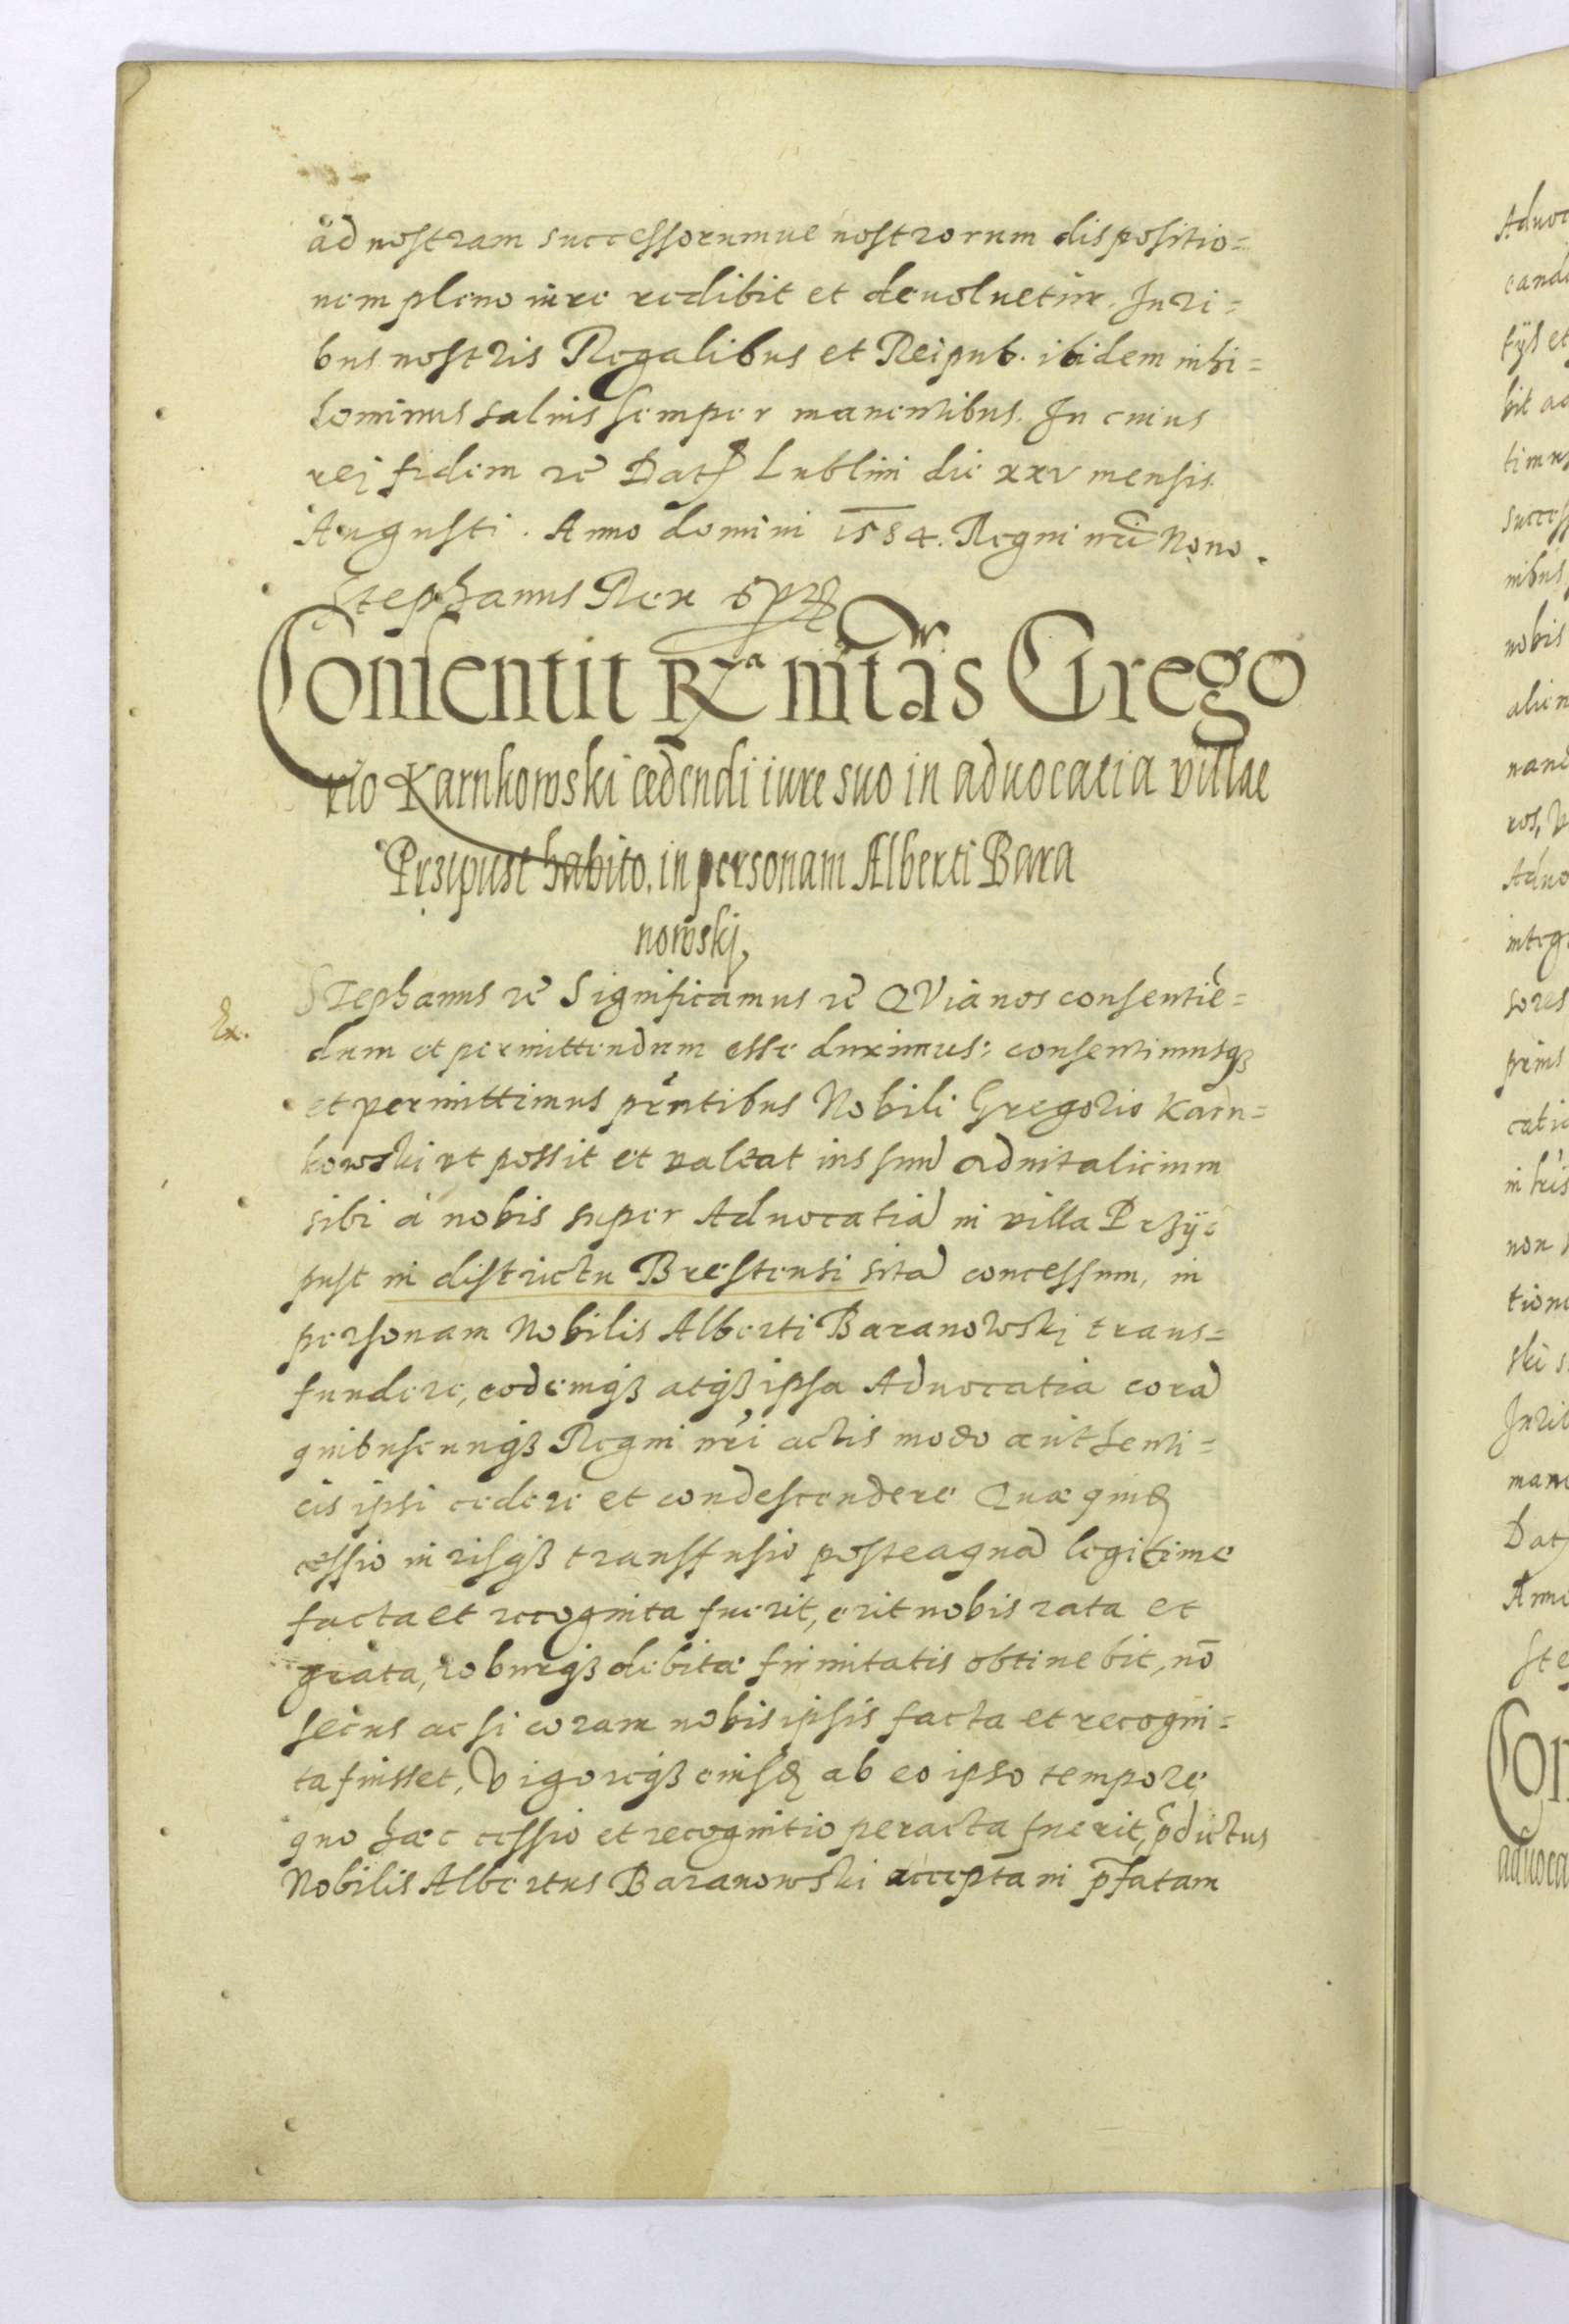 ad nostram successorumue nostrorum dispositio=
nem pleno iure redibit et deuoluetur. Juri=
bus nostris Regalibus et Reipub. ibidem nihi=
lominus saluis semper manentibus. In cuius
rej fidem &c Dat Lublini die xxv mensis
Augusti. Anno domini 1584. Regni nri Nono.
Stephanus Rex
Consentit Ra mtas Grego
rio Karnkowski cedendi iure suo in aduocatia villae
Przipust habito. in personam Alberti Bara
nowskj,
Ex.
STephanus &c Significamus &c QVia nos consentiē=
dum et permittendum esse duximus: consentimusqȝ
et permittimus prntibus Nobili Gregorio Karn=
kowski vt possit et valeat ius suū aduitalicium
sibi a nobis super Aduocatiā in villa Przÿ=
pust in districtu Brestensi sitā concessum, in
personam Nobilis Alberti Baranowskj trans=
fundere, eodemqȝ atqȝ ipsa Aduocatia corā
quibuscunqȝ Regni nri actis modo authenti=
cis ipsi cedere et condescendere Quæ quidē
cessio iurisqȝ transfusio posteaquā legitime
facta et recognita fuerit, erit nobis rata et
grata, roburqȝ debitæ firmitatis obtinebit, nō
secus ac si coram nobis ipsis facta et recogni=
ta fuisset, Vigoreqȝ eiusdē ab eo ipso tempore,
quo hæc cessio et recognitio peracta fuerit, p̄dictus
Nobilis Albertus Baranowski acceptam p̄fatam